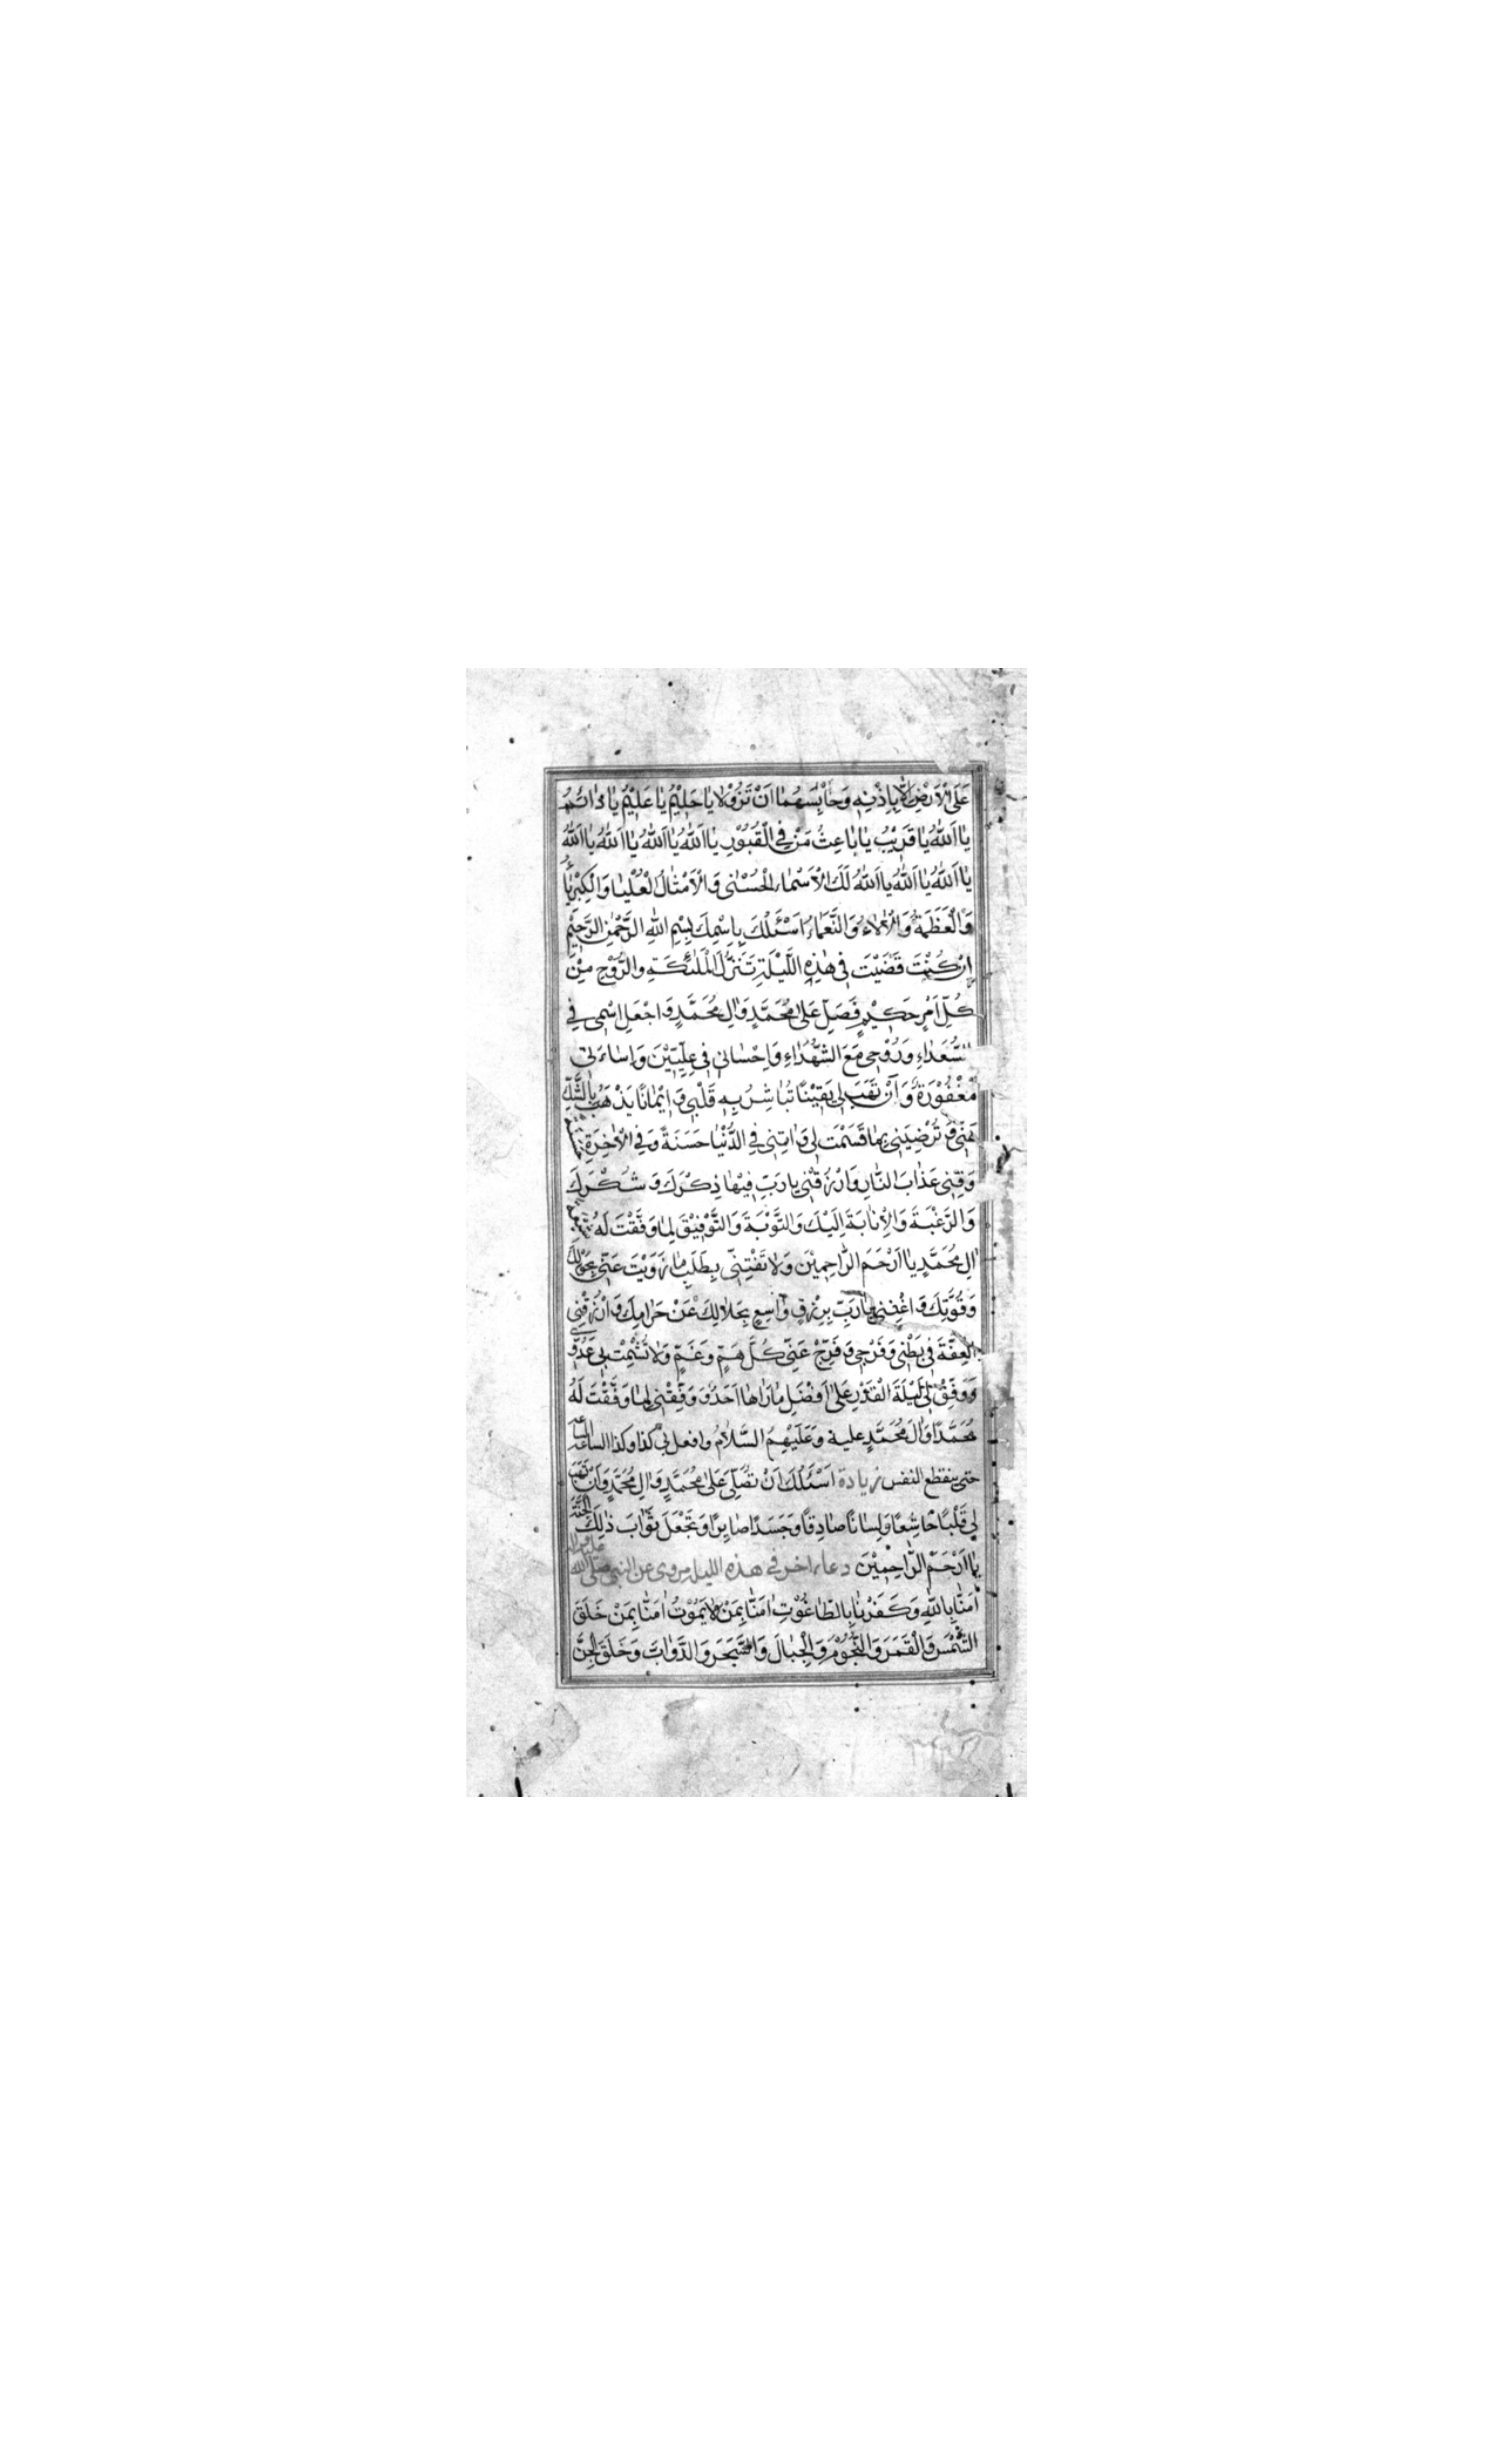 عَلَی الْاَرْضِ اِلّٰا بِاِذْنِهٖ وَحٰابِسَهُمٰا اَنْ تَزُوْلٰا یٰا حَلِیْمُ یٰا عَلِیْمُ یٰا دٰائِمُ
یٰا اَللّٰهُ یٰا قَرِیْبُ یٰا بٰاعِثُ مَنْ فِی الْقُبُوْرِ یٰا اَللّٰهُ یٰا اَللّٰهُ یٰا اَللّٰهُ یٰا اَللّٰهُ
یٰا اَللّٰهُ یٰا اَللّٰهُ یٰا اَللّٰهُ لَكَ الْاَسْمٰاءُ الْحُسْنٰی وَالْاَمْثٰالُ الْعُلْیٰا وَالْكِبْرِیٰاءُ
وَالْعَظَمَةُ وَالْاٰلٰاءُ وَالنَّعْمٰاءُ اَسْئَلُكَ بِاسْمِكَ بِسْمِ اللّٰهِ الرَّحْمٰنِ الرَّحِیْمِ
اِنْ كُنْتَ قَضَیْتَ فِی هٰذِهِ اللَّیْلَةِ تَنَزُّلَ الْمَلٰئِكَةِ وَالرُّوْحِ مِنْ
كُلِّ اَمْرٍ حَكِیْمٍ فَصَلِّ عَلٰی مُحَمَّدٍ وَاٰلِ مُحَمَّدٍ وَاجْعَلِ اسْمِی فِی
السُّعَدٰاءِ وَرُوْحِی مَعَ الشُّهَدٰاءِ وَاِحْسٰانِی فِی عِلِّیِّیْنَ وَاِسٰاءَتِی
مَغْفُوْرَةً وَاَنْ تَهَبَ لِی یَقِیْنًا تُبٰاشِرُ بِهٖ قَلْبِی وَاِیْمٰانًا یَذْهَبُ بِالشَّكِّ
عَنِّی وَتُرْضِیَنِی بِمٰا قَسَمْتَ لِی وَاٰتِنِی فِی الدُّنْیٰا حَسَنَةً وَفِی الْاٰخِرَةِ
وَقِنِی عَذٰابَ النّٰارِ وَارْزُقْنِی یٰا رَبِّ فِیْهٰا ذِكْرَكَ وَشُكْرَكَ
وَالرَّغْبَةَ وَالْاِنٰابَةَ اِلَیْكَ وَالتَّوْبَةَ وَالتَّوْفِیْقَ لِمٰا وَفَّقْتَ لَهُ
اٰلِ مُحَمَّدٍ یٰا اَرْحَمَ الرّٰاحِمِیْنَ وَلٰا تَفْتِنِّی بِطَلَبِ مٰا زَوَیْتَ عَنِّی بِحَوْلِكَ
وَقُوَّتِكَ وَاغْنِنِی یٰا رَبِّ بِرِزْقٍ وٰاسِعٍ بِحَلٰالِكَ عَنْ حَرٰامِكَ وَارْزُقْنِی
الْعِفَّةَ فِی بَطْنِی وَفَرْجِی وَفَرِّجْ عَنِّی كُلَّ هَمٍّ وَغَمٍّ وَلٰا تُشْمِتْ بِی عَدُوِّی
وَوَفِّقْ لِی لَیْلَةَ الْقَدْرِ عَلٰی اَفْضَلِ مٰا رَاٰهٰا اَحَدٌ وَوَفِّقْنِی لِمٰا وَفَّقْتَ لَهُ
مُحَمَّدًا وَاٰلَ مُحَمَّدٍ علیه وَعَلَیْهِمُ السَّلٰامُ وافعل بی كذا وكذا الساعة الساعة
حتی ینقطع النفس زیادة اَسْئَلُكَ اَنْ تُصَلِّیَ عَلٰی مُحَمَّدٍ وَاٰلِ مُحَمَّدٍ وَاَنْ تَهَبَ
لِی قَلْبًا خٰاشِعًا وَلِسٰانًا صٰادِقًا وَجَسَدًا صٰابِرًا وَتَجْعَلَ ثَوٰابَ ذٰلِكَ الْجَنَّةَ
یٰا اَرْحَمَ الرّٰاحِمِیْنَ دعاء اخر فی هذه اللیل مروی عن النبی صلی الله علیه واله
اٰمَنّٰا بِاللّٰهِ وَكَفَرْنٰا بِالطّٰاغُوْتِ اٰمَنّٰا بِمَنْ لٰا یَمُوْتُ اٰمَنّٰا بِمَنْ خَلَقَ
الشَّمْسَ وَالْقَمَرَ وَالنُّجُوْمَ وَالْجِبٰالَ وَالشَّجَرَ وَالدَّوٰابَّ وَخَلَقَ الْجِنَّ